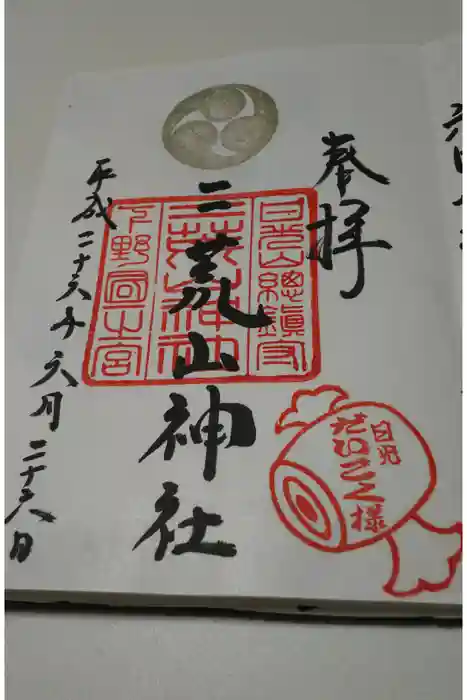 奉拝
日光山總鎮守
二荒山神社
二荒山神社
下野國一之宮
平成二十六年六月二十六日
日光
だいこく様